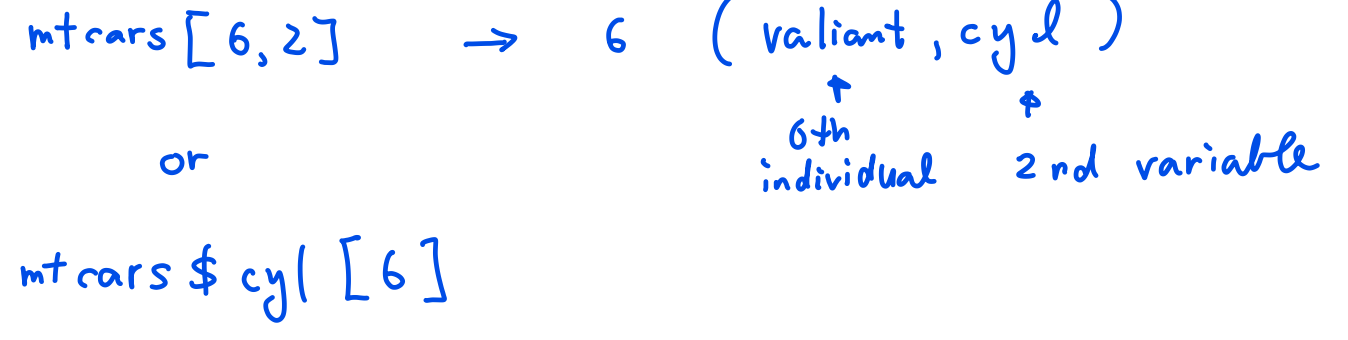 mtcars [6,2] → 6 (valiant, cyl)
6th individual
2nd variable
or
mtcars $ cyl [6]